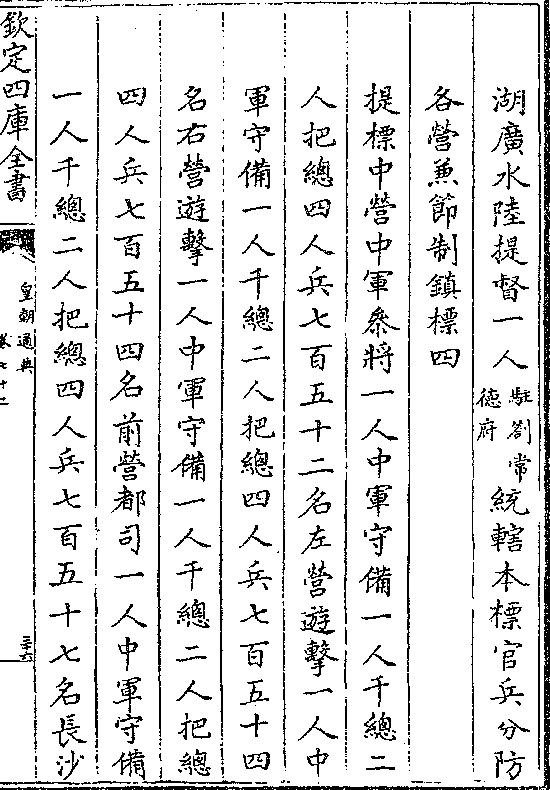 湖廣水陸提督一人駐劄常德府統轄本標官兵分防
各營兼節制鎮標四
提標中營中軍叅將一人中軍守備一人千總二
人把總四人兵七百五十二名左營遊擊一人中
軍守備一人千總二人把總四人兵七百五十四
名右營遊擊一人中軍守備一人千總二人把總
四人兵七百五十四名前營都司一人中軍守備
一人千總二人把總四人兵七百五十七名長沙
欽定四庫全書
皇朝通典
卷七十二
三十六